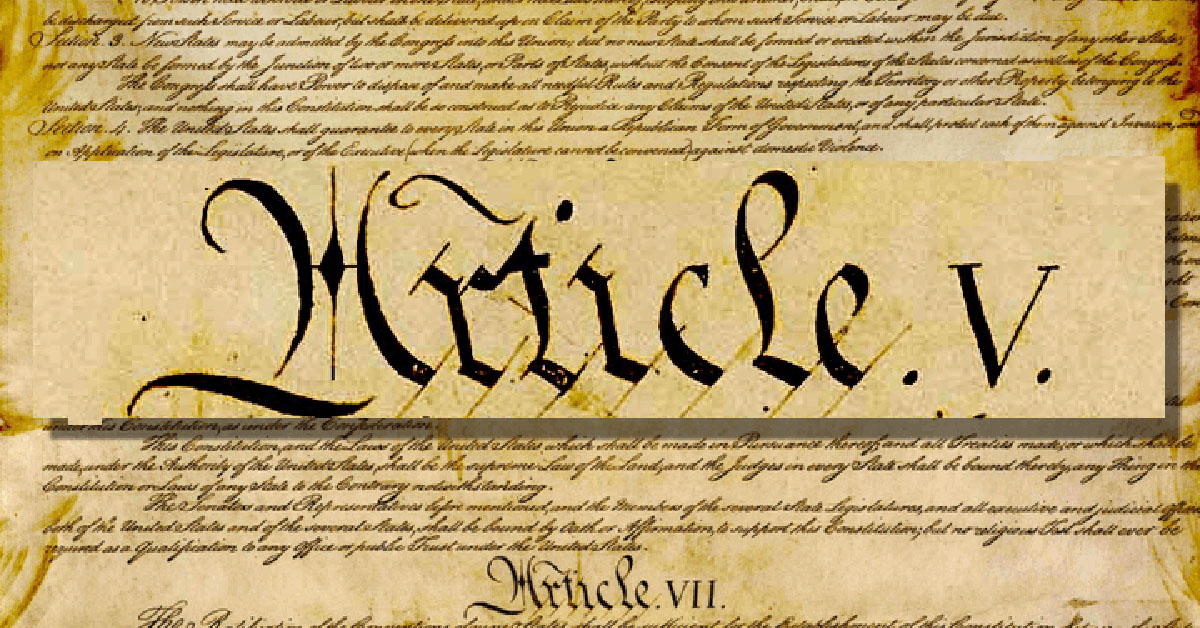 be discharged from such Service or Labour, but shall be delivered up on Claim of the Party to whom such Service or Labour may be due.
Section. 3. New States may be admitted by the Congress into this Union; but no new State shall be formed or erected within the Jurisdiction of any other State;
nor any State be formed by the Junction of two or more States, or Parts of States, without the Consent of the Legislatures of the States concerned as well as of the Congress.
The Congress shall have Power to dispose of and make all needful Rules and Regulations respecting the Territory or other Property belonging to the
United States; and nothing in this Constitution shall be so construed as to Prejudice any Claims of the United States, or of any particular State.
Section. 4. The United States shall guarantee to every State in this Union a Republican Form of Government, and shall protect each of them against Invasion; and
on Application of the Legislature, or of the Executive (when the Legislature cannot be convened) against domestic Violence.
Article. V.
under this Constitution, as under the Confederation.
This Constitution, and the Laws of the United States which shall be made in Pursuance thereof; and all Treaties made, or which shall be
made, under the Authority of the United States, shall be the supreme Law of the Land; and the Judges in every State shall be bound thereby, any Thing in the
Constitution or Laws of any State to the Contrary notwithstanding.
The Senators and Representatives before mentioned, and the Members of the several State Legislatures, and all executive and judicial
both of the United States and of the several States, shall be bound by Oath or Affirmation, to support this Constitution; but no religious Test shall ever be
required as a Qualification to any Office or public Trust under the United States.
Article. VII.
The Ratification of the Conventions of nine States, shall be sufficient for the Establishment of this Constitution